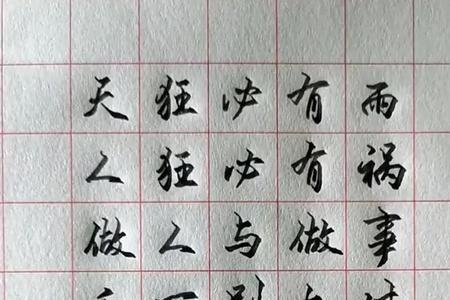 天狂必有雨
人狂必有祸
做人与做事